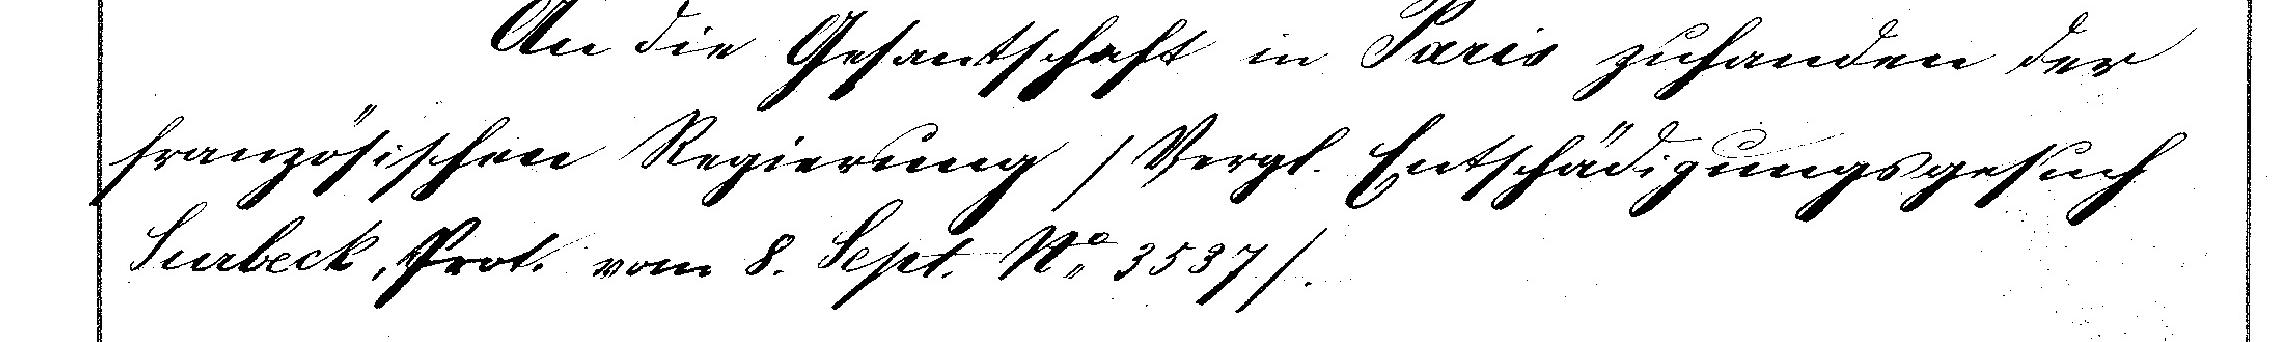 An die Gesantschaft in Paris zuhanden der
französischen Regierung / Vergl. Entschädigungsgesuch
Surbeck, Prot. vom 8. Sept. No 3537 /.